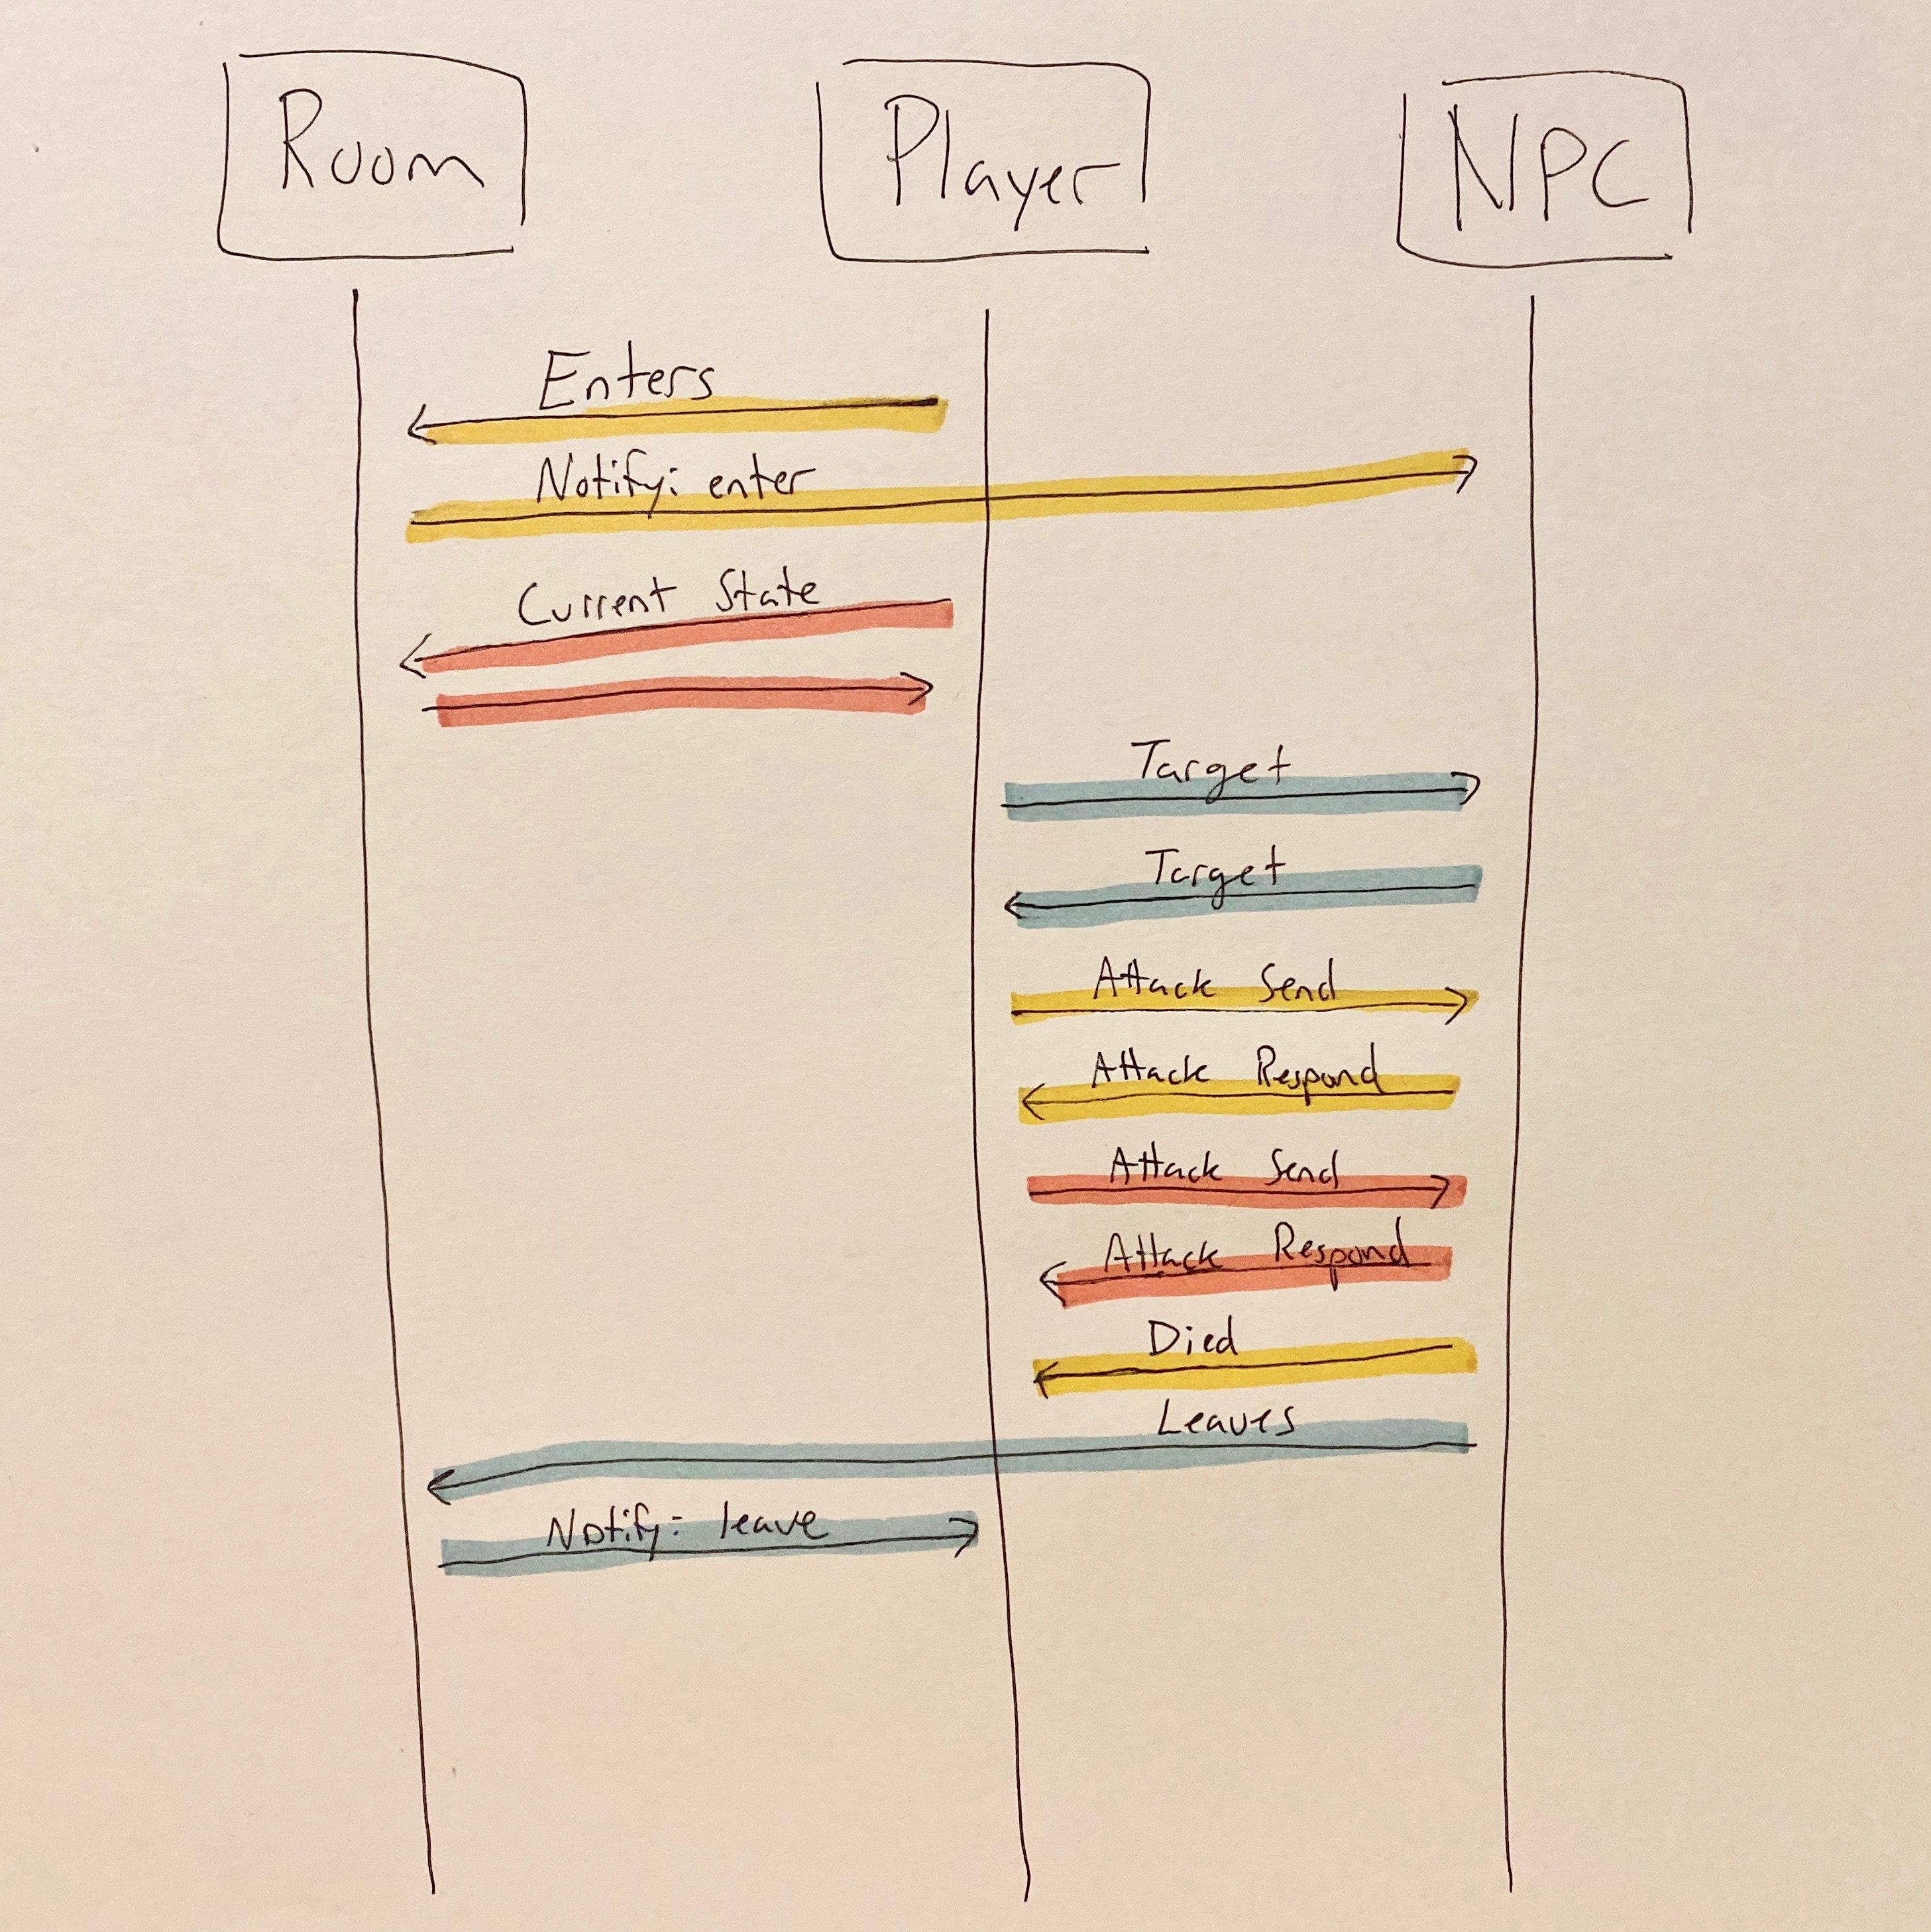 Room
Player
NPC
Enters
Notify: enter
Current State
Target
Target
Attack Send
Attack Respond
Attack Send
Attack Respond
Died
Leaves
Notify: leave